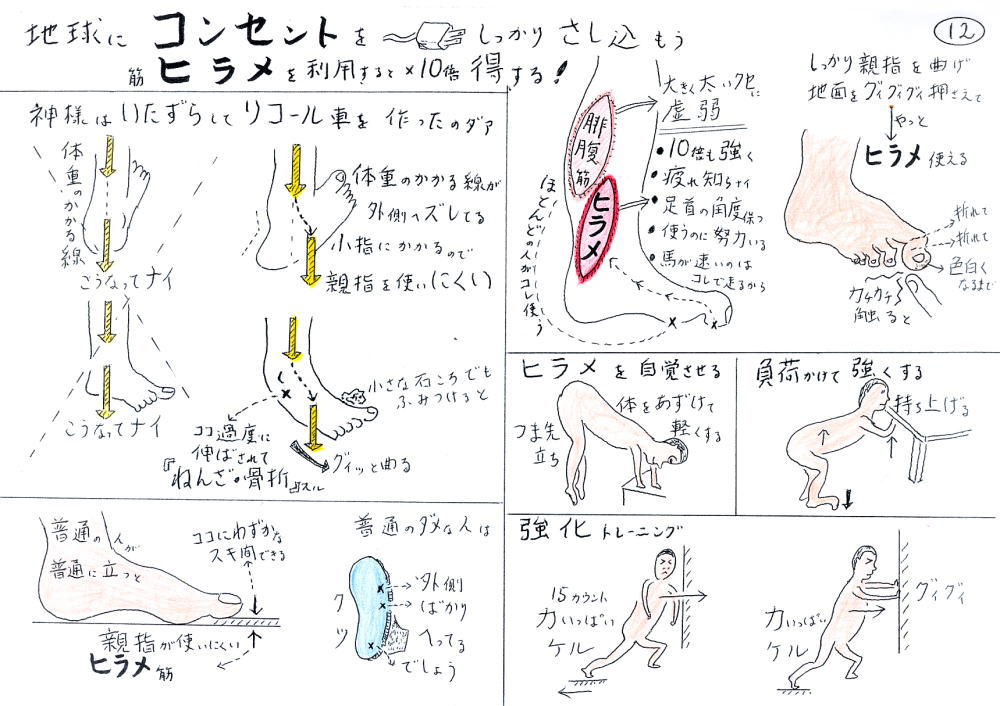 地球に コンセント を しっかり さし込もう
筋 ヒラメ を利用すると ×10倍 得する!
12
神様は いたずらして リコール車を 作ったのダァ
体重のかかる線
こうなってナイ
体重のかかる線が
外側へズレてる
小指にかかるので
親指を使いにくい
こうなってナイ
小さな石ころでも
ふみつけると
ココ過度に
伸ばされて
『ねんざ・骨折
スル
グイッと曲る
普通の人が
普通に立つと
ココにわずかな
スキ間できる
親指が使いにくい
ヒラメ筋
普通のダメな人は
クツ
外側
ばかり
へってる
でしょう
腓腹筋
ヒラメ
ほとんどの人がコレ使う
大きく太いクセに
虚弱
• 10倍も強く
• 疲れ知らナイ
• 足首の角度保つ
• 使うのに努力いる
• 馬が速いのは
コレで走るから
しっかり親指を曲げ
地面をグイグイグイ押さえて
やっと
ヒラメ 使える
折れて
折れて
色白く
なるまで
カチカチ
触ると
ヒラメ を 自覚させる
つま先
立ち
体をあずけて
軽くする
負荷かけて 強くする
持ち上げる
強化 トレーニング
15カウント
力いっぱい
ケル
力いっぱい
ケル
グイグイ